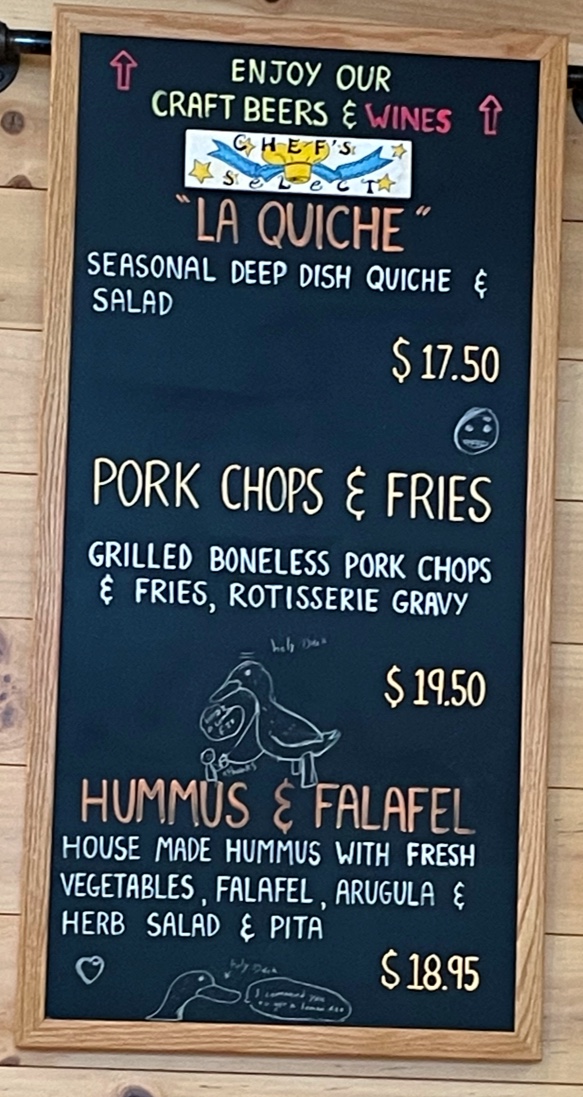 ENJOY OUR
CRAFT BEERS & WINES
CHEF'S
SeLecT
"LA QUICHE"
SEASONAL DEEP DISH QUICHE &
SALAD
$17.50
PORK CHOPS & FRIES
GRILLED BONELESS PORK CHOPS
& FRIES, ROTISSERIE GRAVY
holy Duck
$19.50
HUMMUS & FALAFEL
HOUSE MADE HUMMUS WITH FRESH
VEGETABLES, FALAFEL, ARUGULA &
HERB SALAD & PITA
$18.95
holy Duck
I command you